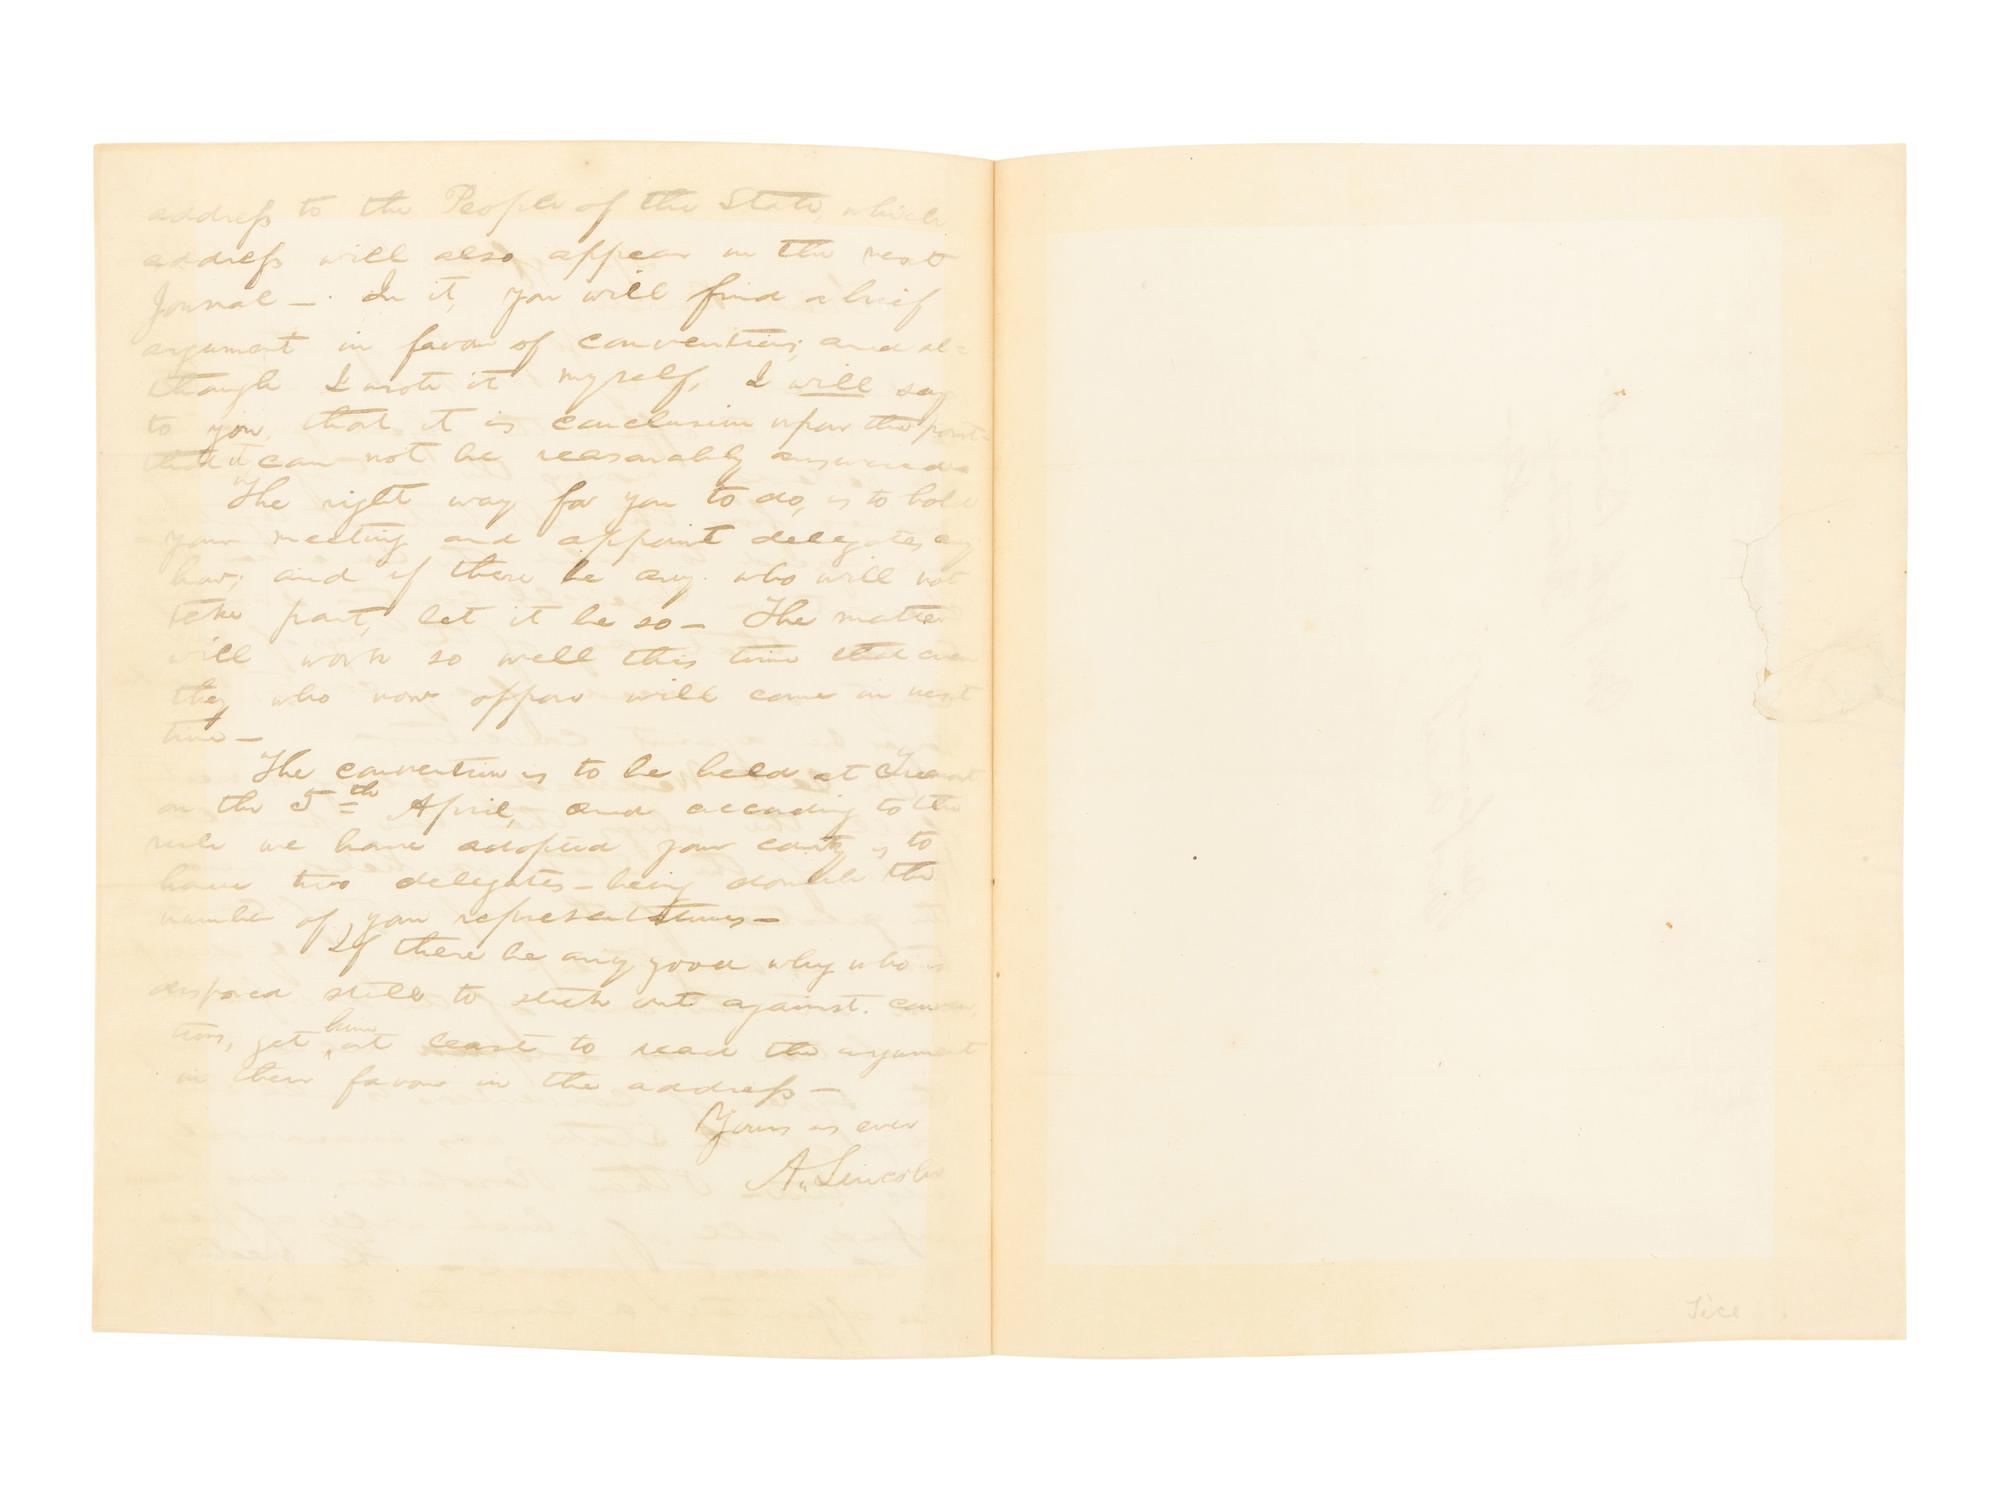 address to the People of the State, which
address will also appear in the next
Journal — . In it, you will find a brief
argument in favor of conventions; and al=
though I wrote it myself, I will say
to you, that it is conclusion upon the point
that it can not be reasonably answered
The right way for you to do, is to hold
your meeting and appoint delegates any
how; and if there be any who will not
take part, let it be so — The matter
will work so well this time that even
they who now oppose will come in next
time —
The convention is to be held at Tremont
on the 5th April, and according to the
rule we have adopted your county is to
have two delegates — being double the
number of your representatives —
If there be any good whig who is
disposed still to stick out against conven
tions, get him at least to read the argument
in their favor in the address —
Yours as ever
A. Lincoln
Tice